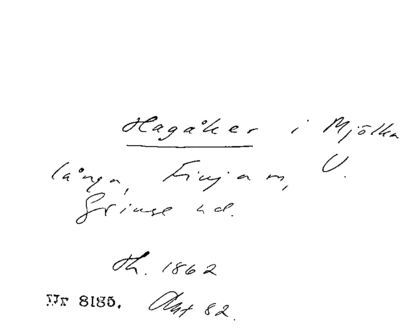 Hagåker i Mjölka
långa, Finja sn, V.
Göinge hd.
Th. 1862
Nr 8185. Akt 82.